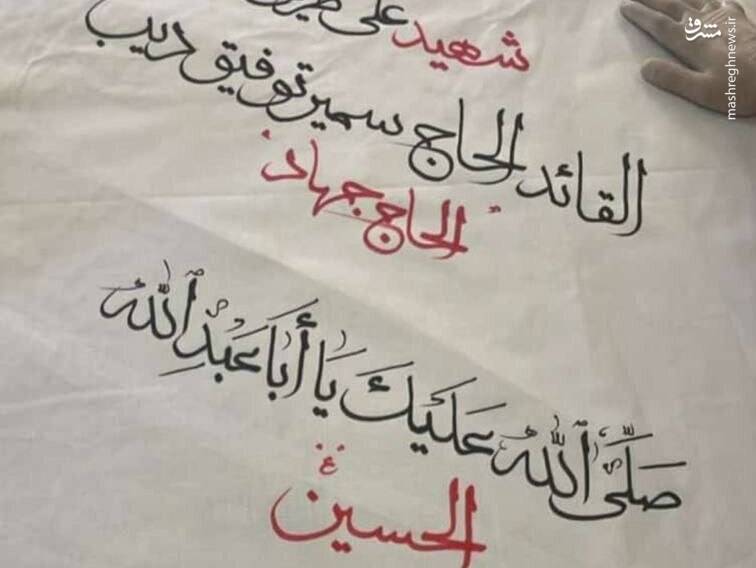 شهيد على طريق
القائد الحاج سمير توفيق ديب
"الحاج جهاد"
صَلَّى ٱللهُ عَلَيكَ يَا أَبَا عَبدِ ٱللهُ
الحسين
ع
مشرق
mashreghnews.ir